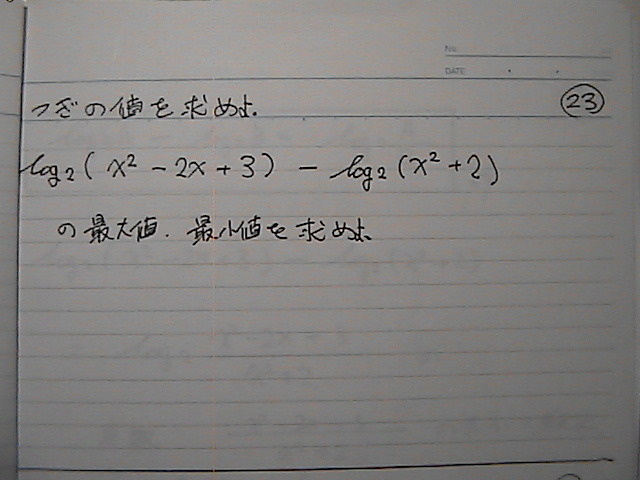 No.
DATE
つぎの値を求めよ.
23
log₂(x² - 2x + 3) - log₂(x² + 2)
の最大値. 最小値を求めよ.